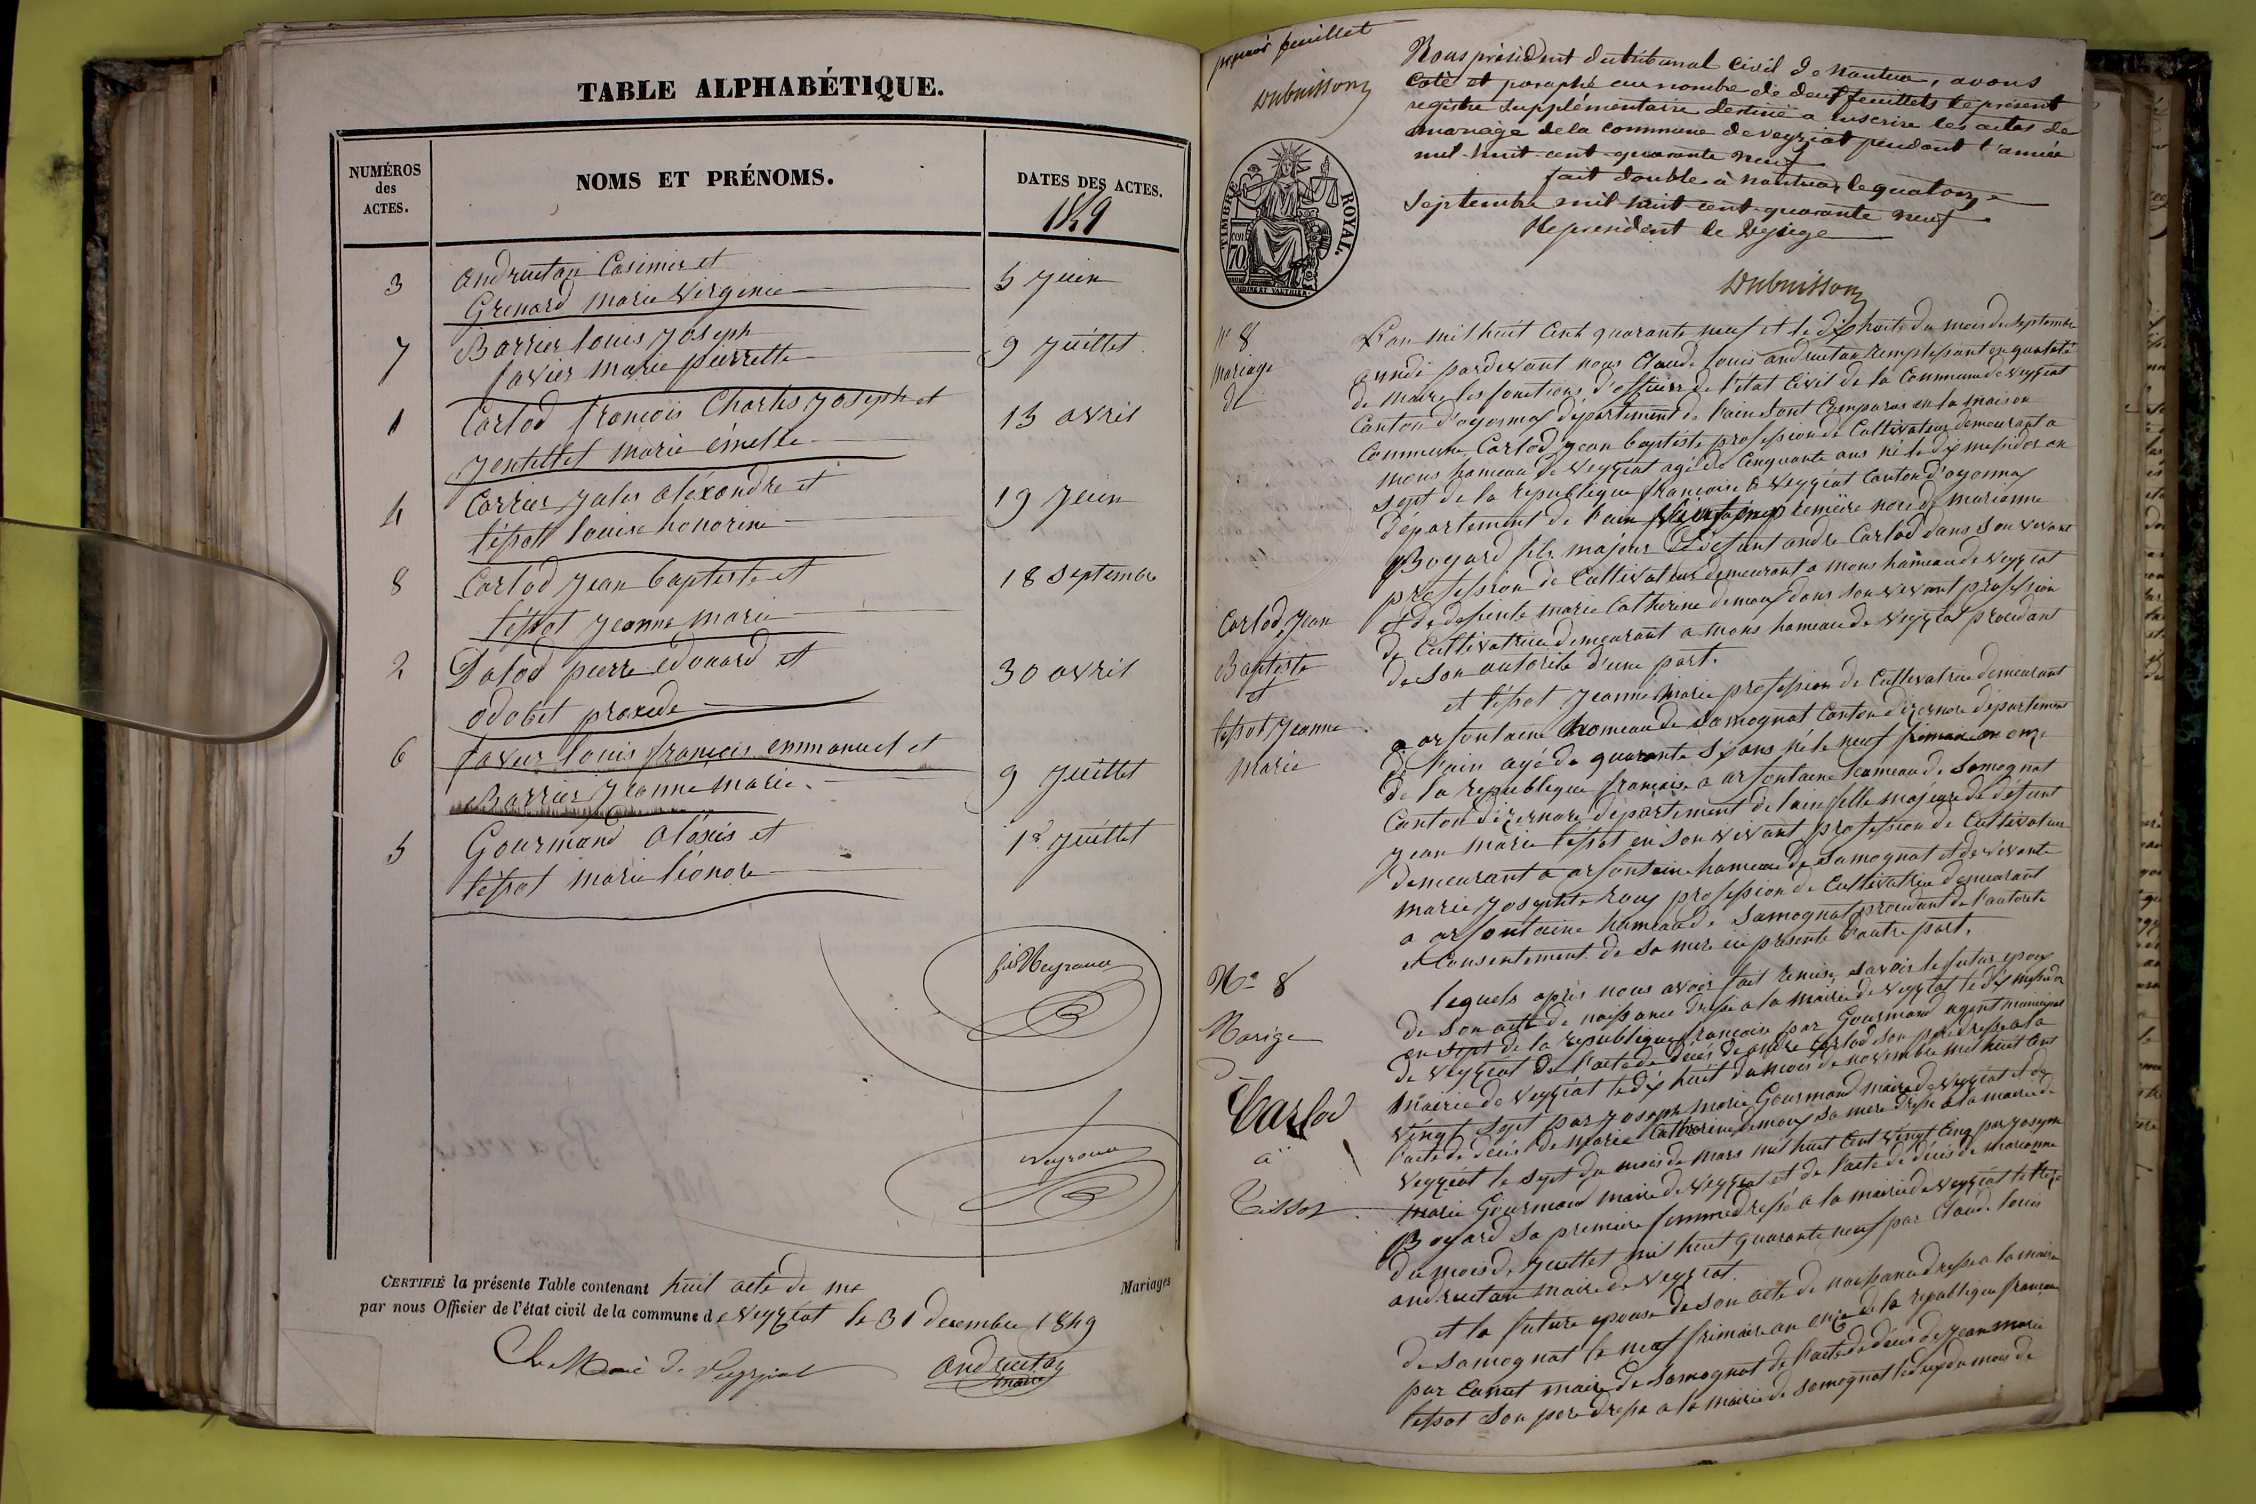 TABLE ALPHABÉTIQUE.
NUMÉROS
des
ACTES.
NOMS ET PRÉNOMS.
DATES DES ACTES.
1849
3 andruetan Casimir et 5 juin
Grenard marie virginie
7 Barrier louis joseph 9 juillet
favier marie pierrette
1 Carlod françois Charles joseph et 13 avril
jentellet marie émélie
4 Carrier jules aléxandre et 19 juin
tissot louise honorine
8 Carlod jean baptiste et 18 septembre
tissot jeanne marie
2 Dalod pierre edouard et 30 avril
odobet praxede
6 favier louis françois emmanuel et
Barrier jeanne marie 9 juillet
5 Gourmand aléxis et 1er juillet
tissot marie léonore
CERTIFIÉ la présente Table contenant huit acte de ma Mariages
par nous Officier de l'état civil de la commune de veyziat le 31 decembre 1849
Le Maire de Veyziat
andruetan
maire
premier feuillet
Dubuisson
Nous président du tribunal civil de nantua, avons
coté et paraphé au nombre de deux feuillets le present
registre supplémentaire destiné a inscrire les actes de
mariage de la commune de veyziat pendant l'année
mil huit cent quarante neuf
fait double à nantua le quatorze
septembre mil huit cent quarante neuf
le président le juge
Dubuisson
TIMBRE ROYAL.
70
n° 8
mariage
de
Carlod jean
Baptiste
et
tissot jeanne
marie
L'an mil huit cent quarante neuf et le dix huite du mois de septembre
a midi pardevant nous Claude louis andruetan remplissant en qualité
de maire les fonctions d'officier de l'état civil de la Commune de veyziat
Canton d'oyonnax département de l'ain sont Comparus en la maison
Commune Carlod jean baptiste profession de Cultivateur demeurant a
mons hameau de veyziat agé de Cinquante ans né le dix messidor an
sept de la republique françoise a veyziat Canton d'oyonnax
département de l'ain premiere noce de marianne
Boyard fils majeur de défunt andre Carlod dans son vivant
profession de Cultivateur demeurant a mons hameau de veyziat
et de défunte marie Catherine demoux dans son vivant profession
de Cultivatrice demeurant a mons hameau de veyziat procédant
de son autorite d'une part.
et tissot jeanne marie profession de Cultivatrice demeurant
a arfontaine hameau de samognat Canton d'izernore departement
de l'ain agé de quarante six ans né le neuf frimaire an onze
de la republique françoise a arfontaine hameau de samognat
Canton d'izernore departement de l'ain fille majeure de défunt
jean marie tissot en son vivant profession de Cultivateur
demeurant a arfontaine hameau de samognat et de vivante
marie josephte roux profession de Cultivatrice demeurant
a arfontaine hameau de samognat procédant de l'autorite
et Consentement de sa mere ici présente d'autre part.
N° 8
Mariage
de
Carlod
à
Tissot
lequels après nous avoir fait remise savoir le futur epoux
de son acte de naissance dressé a la mairie de veyziat le dix messidor
an sept de la republique françoise par Gourmand agent municipal
de veyziat de l'acte de décès de andre Carlod son pere dressé a la
mairie de veyziat le dix huit du mois de novembre mil huit cent
vingt sept par joseph marie Gourmand maire de veyziat et de
l'acte de décès de marie Catherine demoux sa mere dressé a la mairie de
veyziat le sept du mois de mars mil huit cent vingt cinq par joseph
marie Gourmand maire de veyziat et de l'acte de décès de marianne
Boyard sa premiere femme dressé a la mairie de veyziat le treize
du mois de juillet mil huit quarante neuf par Claude louis
andruetan maire de veyziat.
et la future epouse de son acte de naissance dressé a la mairie
de samognat le neuf frimaire an onze de la republique françoise
par Canet maire de samognat de l'acte de décès de jean marie
tissot son pere dressé a la mairie de samognat le dix du mois de